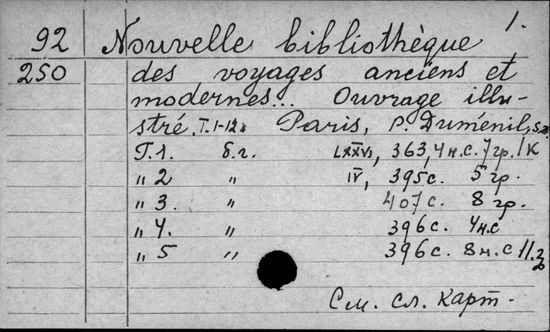 1.
92 Nouvelle bibliothèque
250 des voyages anciens et
modernes... Ouvrage illu-
stré. T. 1-12. Paris, P. Duménil, s.a.
T. 1. б.г. LXXVI, 363, 4 н.с. 7 гр. 1 к
" 2 " IV, 395 с. 5 гр.
" 3. " 407 с. 8 гр.
" 4. " 396 с. 4 н.с
" 5 " 396 с. 8 н.с 11 гр
См. сл. карт.